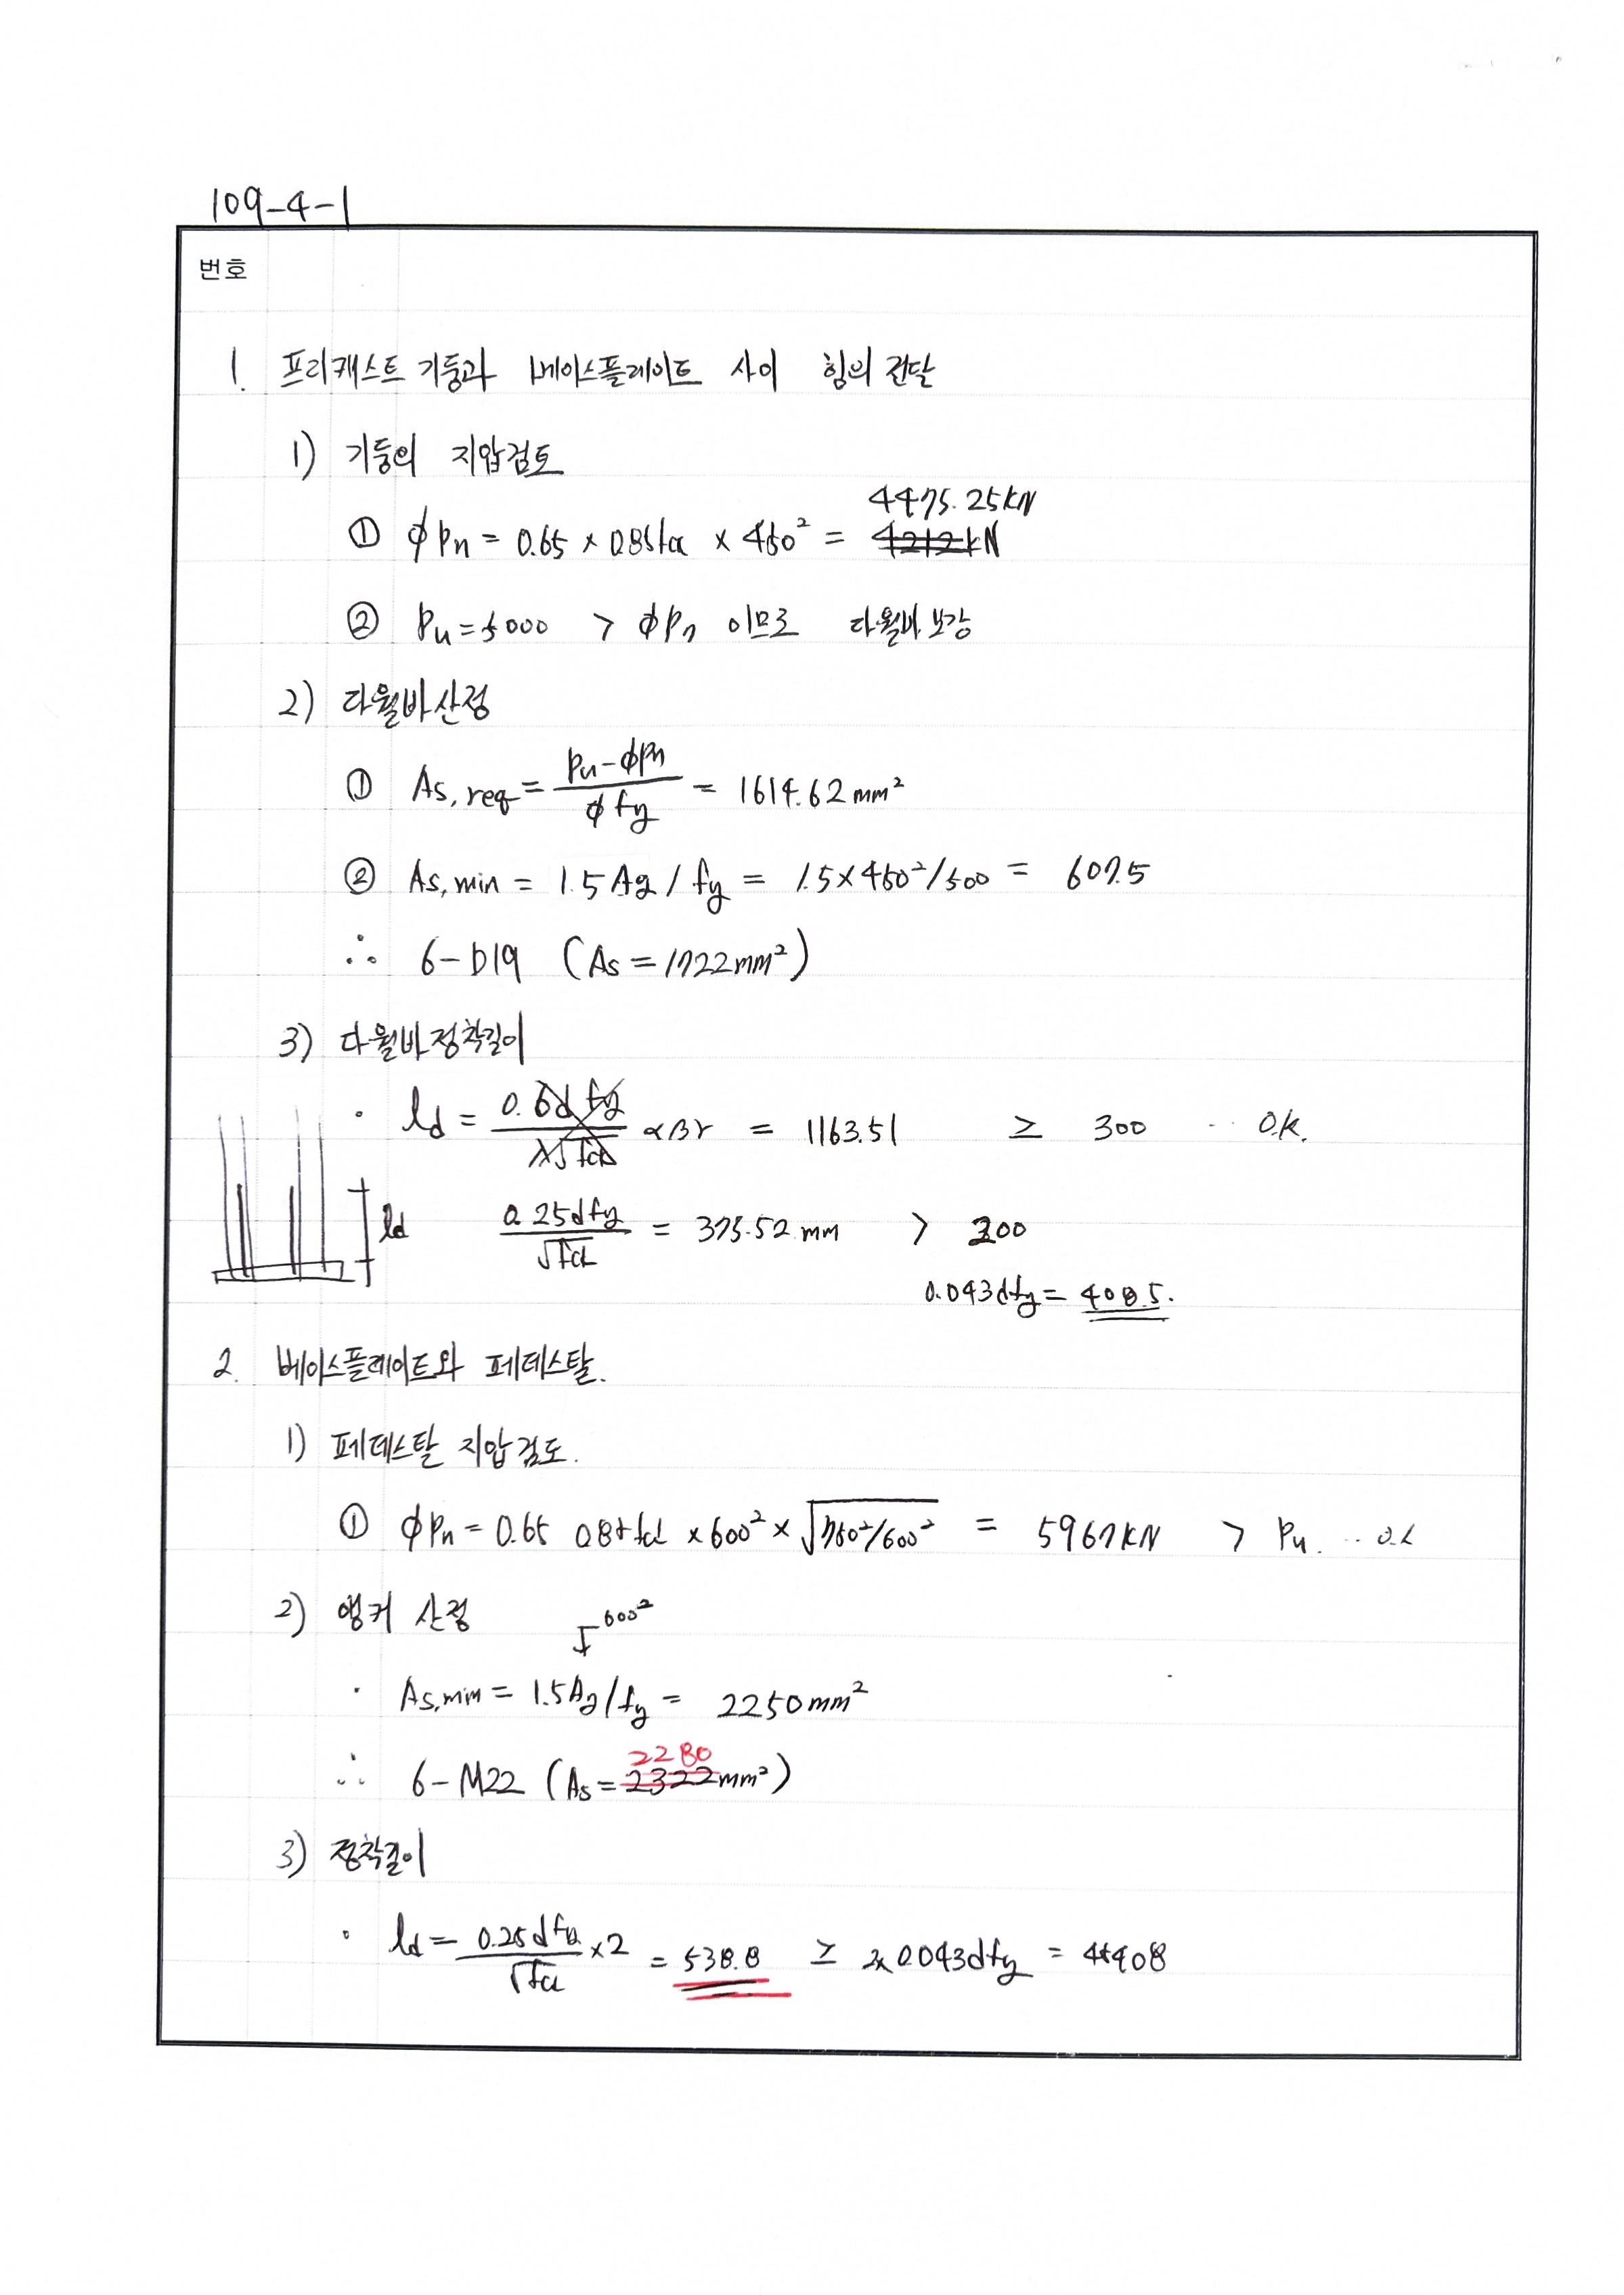 109-4-1
번호
1. 프리캐스트 기둥과 베이스플레이트 사이 힘의 전달
1) 기둥의 지압검토
4475.25kN
① φPn = 0.65 × 0.85fck × 450² = 4212kN
② Pu = 5000 > φPn 이므로 다월바 보강
2) 다월바 산정
① As,req = (Pu-φPn) / (φfy) = 1614.62 mm²
② As,min = 1.5Ag / fy = 1.5×450²/500 = 607.5
∴ 6-D19 (As = 1722mm²)
3) 다월바 정착길이
· ld = 0.6d fy / λ√fck αβγ = 1163.51 ≥ 300 ·· O.K.
ld 0.25dfy / √fck = 375.52 mm > 200
0.043dfy = 408.5.
2. 베이스플레이트와 페데스탈.
1) 페데스탈 지압검토.
① φPn = 0.65 0.85fck × 600² × √750²/600² = 5967kN > Pu. ·· O.K
2) 앵커 산정 600²
· As,min = 1.5Ag/fy = 2250mm²
2280
∴ 6-M22 (As = 2322mm²)
3) 정착길이
· ld = 0.25dfy / √fck ×2 = 538.8 ≥ 2×0.043dfy =